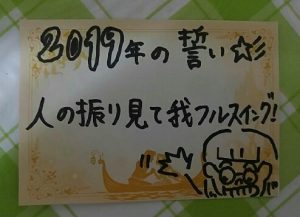 2019年の誓い☆彡
人の振り見て我フルスイング!